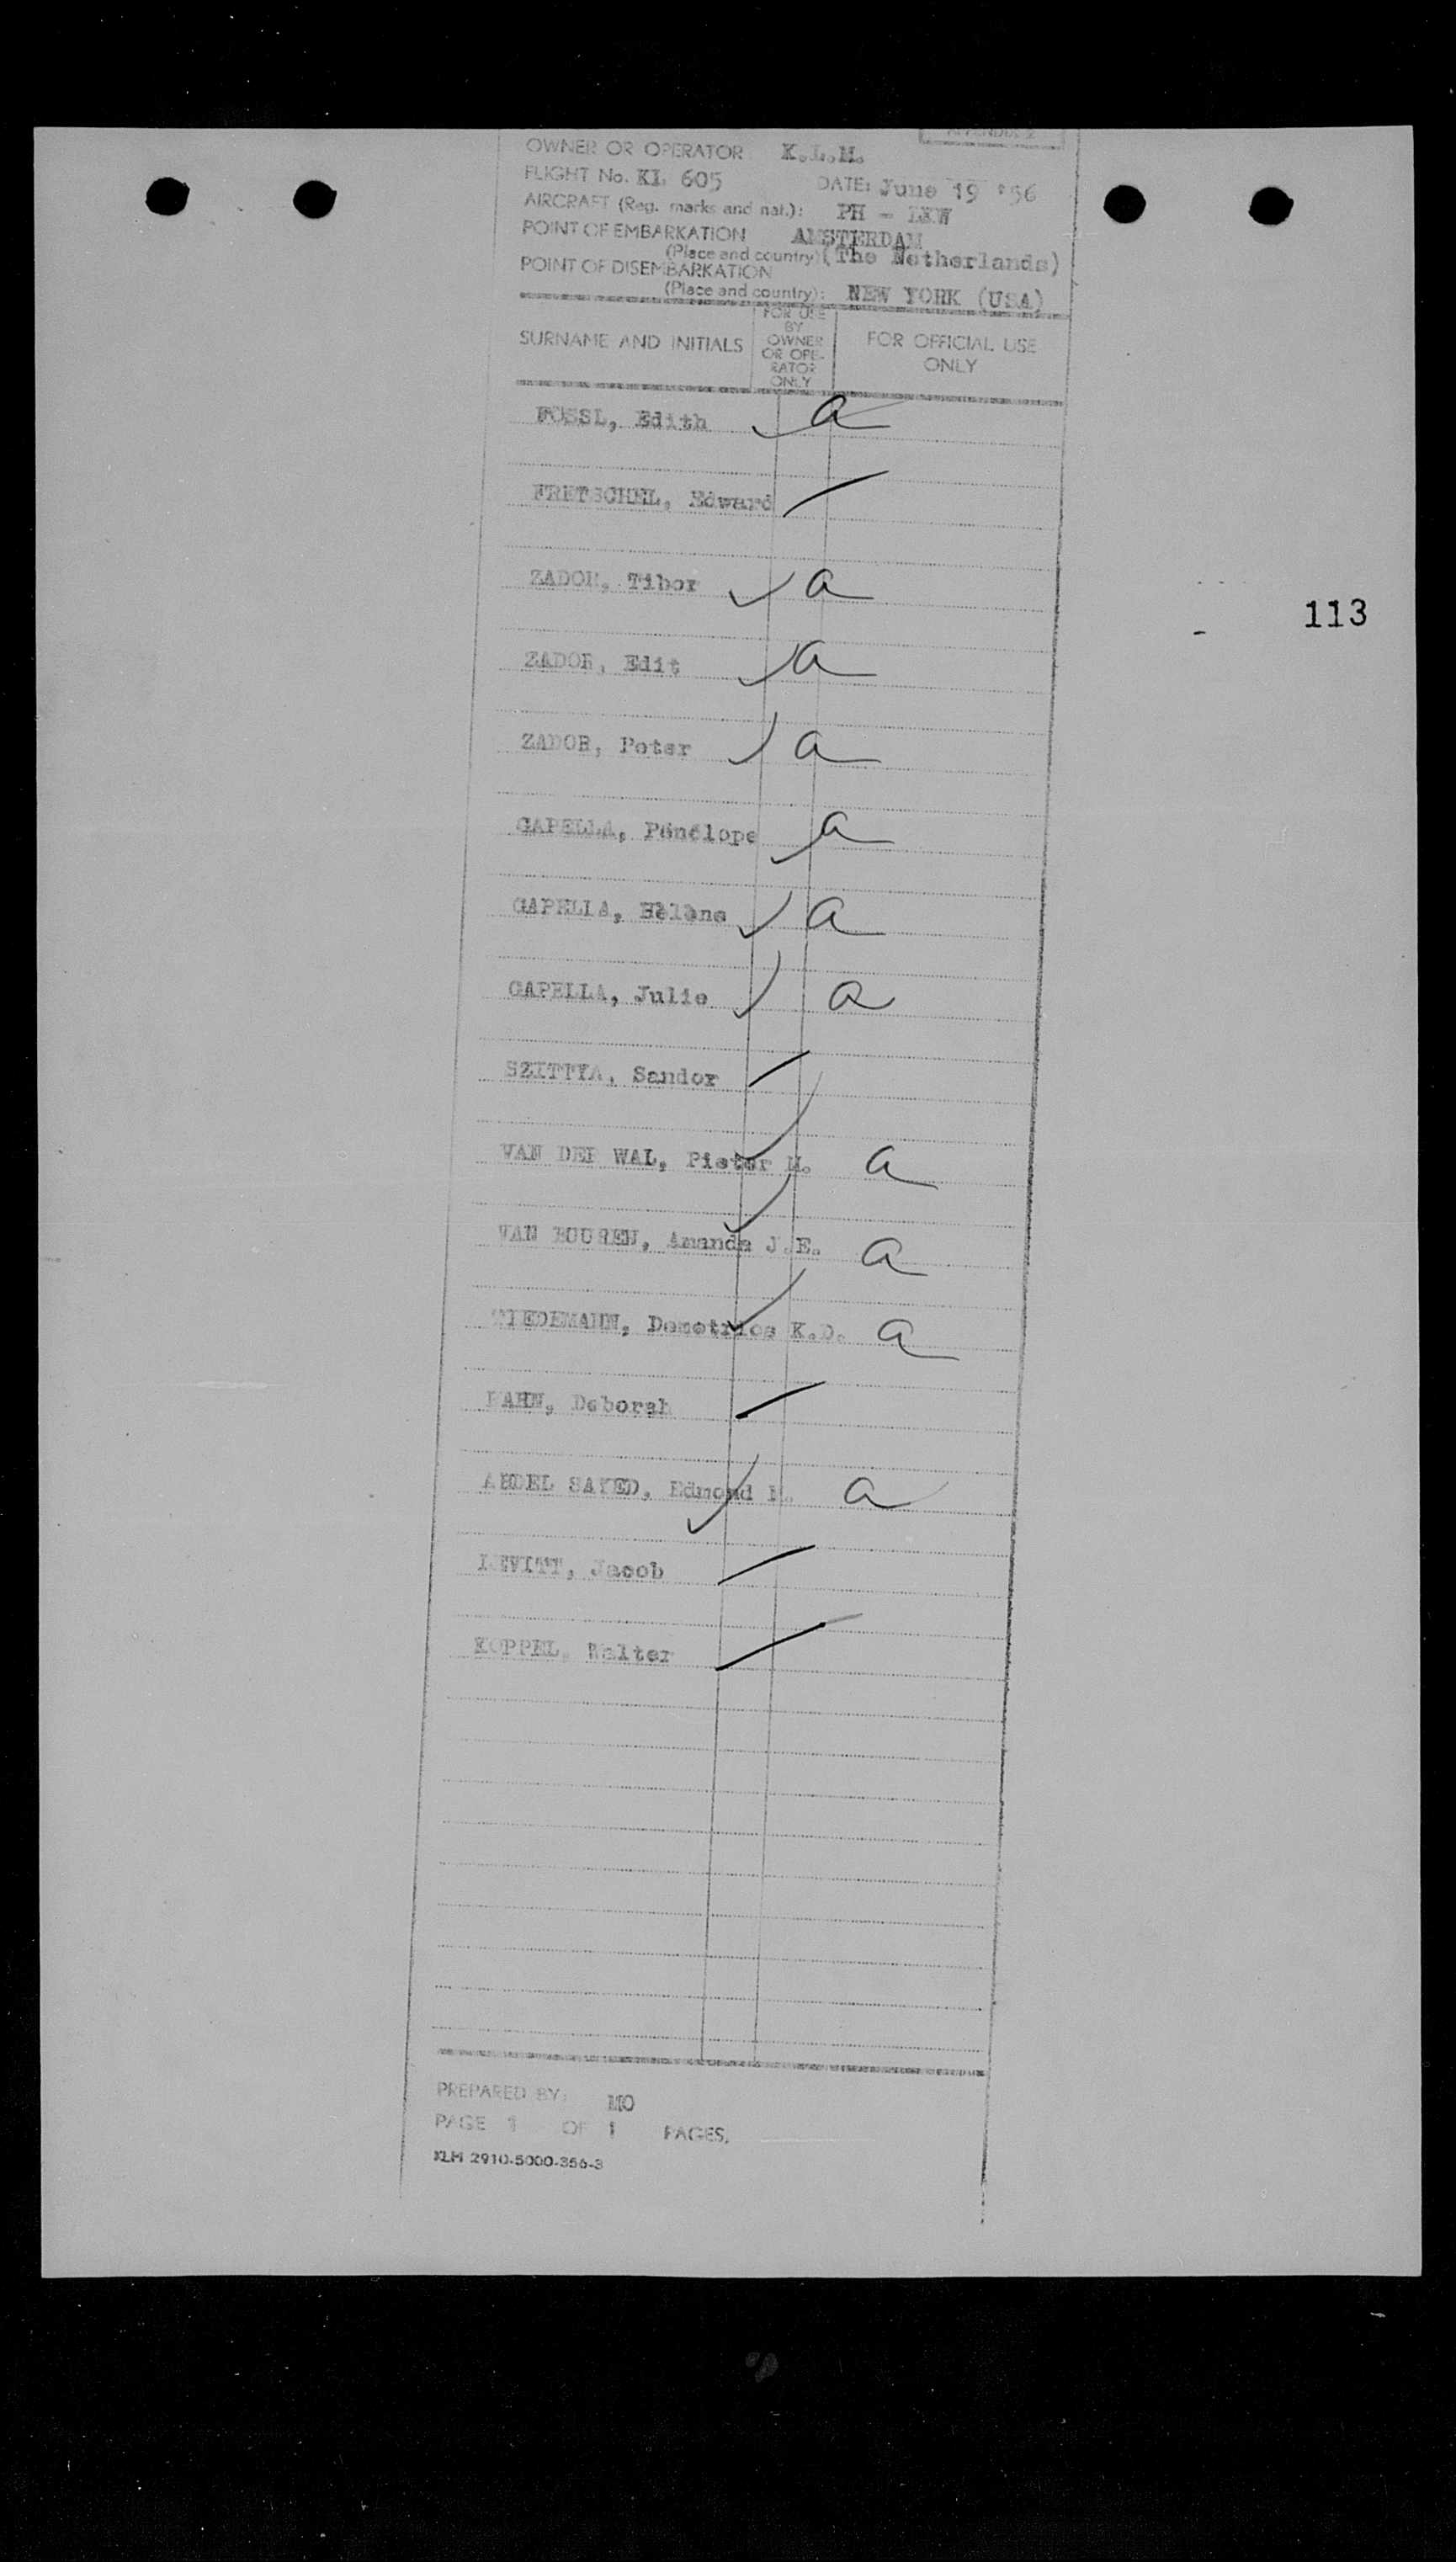 APPENDIX 2
OWNER OR OPERATOR K.L.M.
FLIGHT No. KL 605 DATE: June 19 '56
AIRCRAFT (Reg. marks and nat.): PH - LKW
POINT OF EMBARKATION AMSTERDAM
(Place and country) (The Netherlands)
POINT OF DISEMBARKATION
(Place and country): NEW YORK (USA)
SURNAME AND INITIALS
FOR USE
BY
OWNER
OR OPE-
RATOR
ONLY
FOR OFFICIAL USE
ONLY
FOSSL, Edith a
FRETSCHEL, Edward
ZADOR, Tibor a
113
ZADOR, Edit a
ZADOR, Peter a
GAPELLA, Pénélope a
GAPELLA, Hélène a
GAPELLA, Julie a
SZITTYA, Sandor
VAN DER WAL, Pieter H. a
VAN Amanda J.E. a
TIEDEMANN, Demetrios K.D. a
Deborah
ABDEL SAYED, Edmond a
LEVITT, Jacob
KOPPEL, Walter
PREPARED BY: MO
PAGE 1 OF 1 PAGES.
KLM 2910-5000-356-3